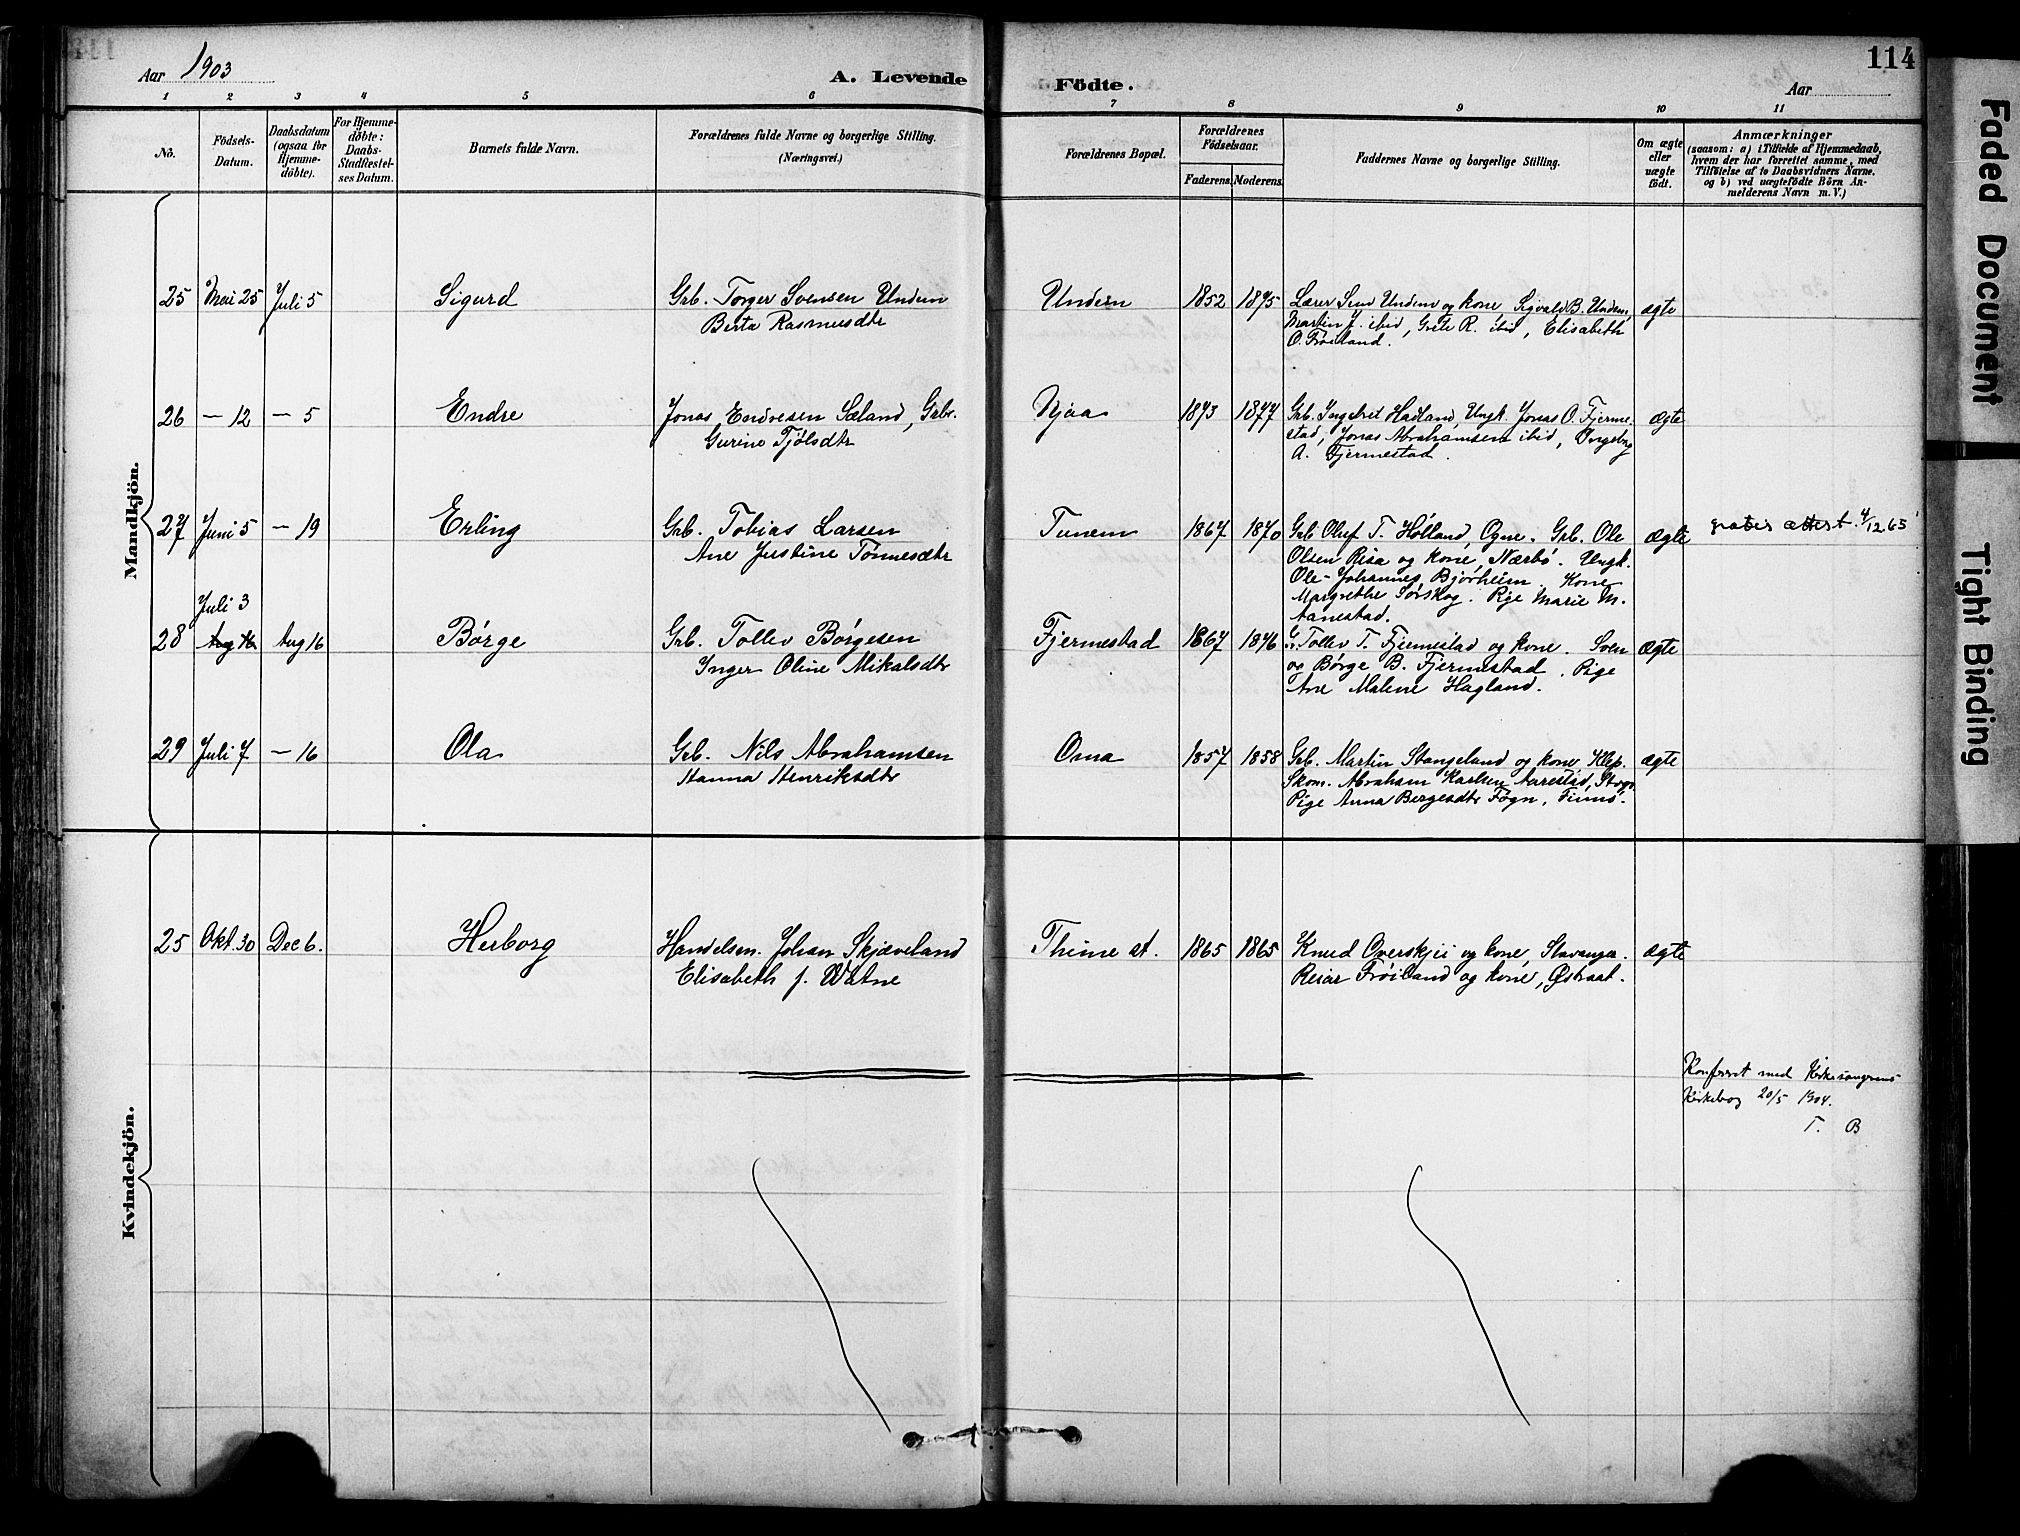 114
Aar 1903
A. Levende
Födte.
Aar
1 2 3 4 5 6 7 8 9 10 11
No.
Födsels-
Datum.
Daabsdatum
(ogsaa for
Hjemme-
döbte).
For Hjemme-
döbte:
Daabs-
Stadfæstel-
ses Datum.
Barnets fulde Navn.
Forældrenes fulde Navne og borgerlige Stilling.
(Næringsvei.)
Forældrenes Bopæl.
Forældrenes
Födselsaar.
Faderens. Moderens.
Faddernes Navne og borgerlige Stilling.
Om ægte
eller
uægte
födt.
Anmærkninger
(saasom: a) i Tilfælde af Hjemmedaab,
hvem der har forrettet samme, med
Tilföielse af to Daabsvidners Navne.
og b) ved uægtefödte Börn An-
melderens Navn m. V.)
Mandkjön.
25 Mai 25 Juli 5 Sigurd Grb. Torger Svensen Undem
Berta Rasmusdtr
Undem 1852 1875 Lærer Sem Undem og kone, Sigvald B. Undem,
Martin J. ibid, Grete R. ibid, Elisabeth
O. Frøiland.
ægte
26 — 12 — 5 Endre Jonas Endresen Sæland, Grb.
Gurine Tjølsdtr
Njaa 1873 1877 Grb. Ingebret Hadland, Ungk. Jonas O. Fjerme-
stad, Jonas Abrahamsen ibid, Ingeborg
A. Fjermestad.
ægte
27 Juni 5 — 19 Erling Grb. Tobias Larsen
Ane Justine Tønnesdtr
Tunem 1867 1870 Grb Oluf T. Hølland, Ogne. Grb. Ole
Olsen Risa og kone, Nærbø. Ungk.
Ole Johannes Bjorheim. Kone
Margrethe Sørskog. Pige Marie M.
Aanestad.
ægte gratis attest. 4/12 65
28 Juli 3
Aug 16 Aug 16 Børge Grb. Tollev Børgesen
Inger Oline Mikalsdtr
Fjermestad 1867 1876 Tollev T. Fjermestad og kone. Sven
og Børge B. Fjermestad. Pige
Ane Malene Hagland.
ægte
29 Juli 7 — 16 Ola Grb. Nils Abrahamsen
Hanna Henriksdtr
Oma 1857 1858 Grb. Martin Stangeland og kone Klep.
Skom. Abraham Karlsen Aarestad,
Pige Anna Bergesdtr Fogn, Finnø.
ægte
Kvindekjön.
25 Okt. 30 Dec 6. Herborg Handelsm. Johan Skjæveland
Elisabeth f. Watne
Thime st. 1865 1865 Knud Overskjei og kone, Stavanger.
Reiar Frøiland og kone, Østraat.
ægte
Konferert med Kirkesangerens
Kirkebog 20/5 1904.
T. B
Faded Document
Tight Binding